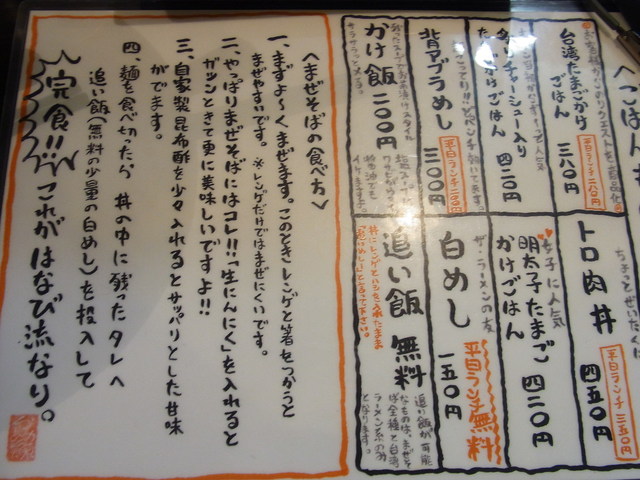 〈ごはん
台湾たまごかけ
ごはん
三八〇円
平日ランチ二八〇円
チャーシュー入り
かけごはん
四二〇円
背アブラめし
三〇〇円
平日ランチ二〇〇円
かけ飯
二〇〇円
トロ肉丼
四五〇円
平日ランチ三五〇円
女子に人気
明太子たまご
かけごはん
四二〇円
ザ・ラーメンの友
白めし
一五〇円
平日ランチ無料
追い飯
無料
丼にレンゲとハシを入れたまま
〈まぜそばの食べ方〉
一、まずよ〜くまぜます。このときレンゲと箸をつかうと
まぜやすいです。※レンゲだけではまぜにくいです。
二、やっぱりまぜそばにはコレ!!「生にんにく」を入れると
ガツンときて更に美味しいですよ!!
三、自家製昆布酢を少々入れるとサッパリとした甘味
がでます。
四、麺を食べ切ったら 丼の中に残ったタレへ
追い飯(無料の少量の白めし)を投入して
完食!!これがはなび流なり。